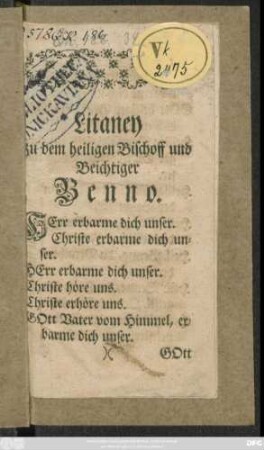 Vk
2475
Litaney
zu dem heiligen Bischoff und
Beichtiger
Benno.
HErr erbarme dich unser.
Christe erbarme dich un-
ser.
HErr erbarme dich unser.
Christe höre uns.
Christe erhöre uns.
GOtt Vater vom Himmel, er-
barme dich unser.
GOtt